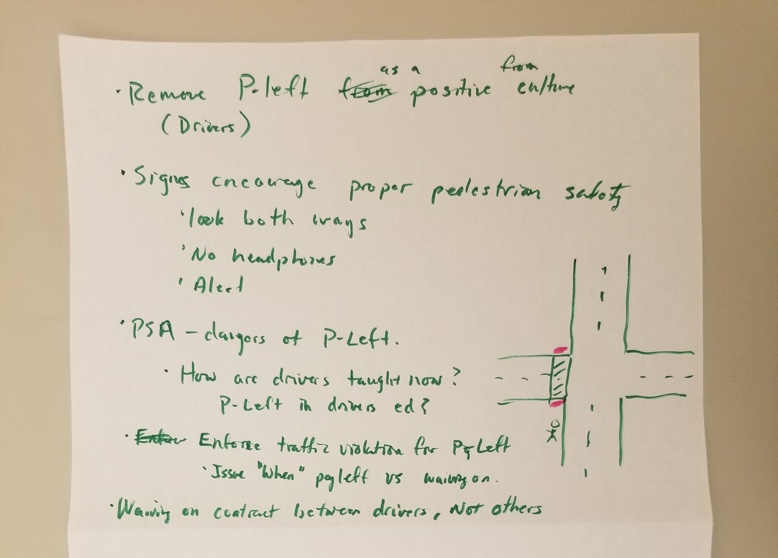 as a from
· Remove P-left from positive culture
(Drivers)
· Signs encourage proper pedestrian safety
· look both ways
· No headphones
· Alert
· PSA – dangers of P-Left.
· How are drivers taught now?
P-Left in drivers ed?
· Enforce traffic violation for P-Left
· Issue "When" pgleft vs waiving on.
· Waiving on contract between drivers, Not others